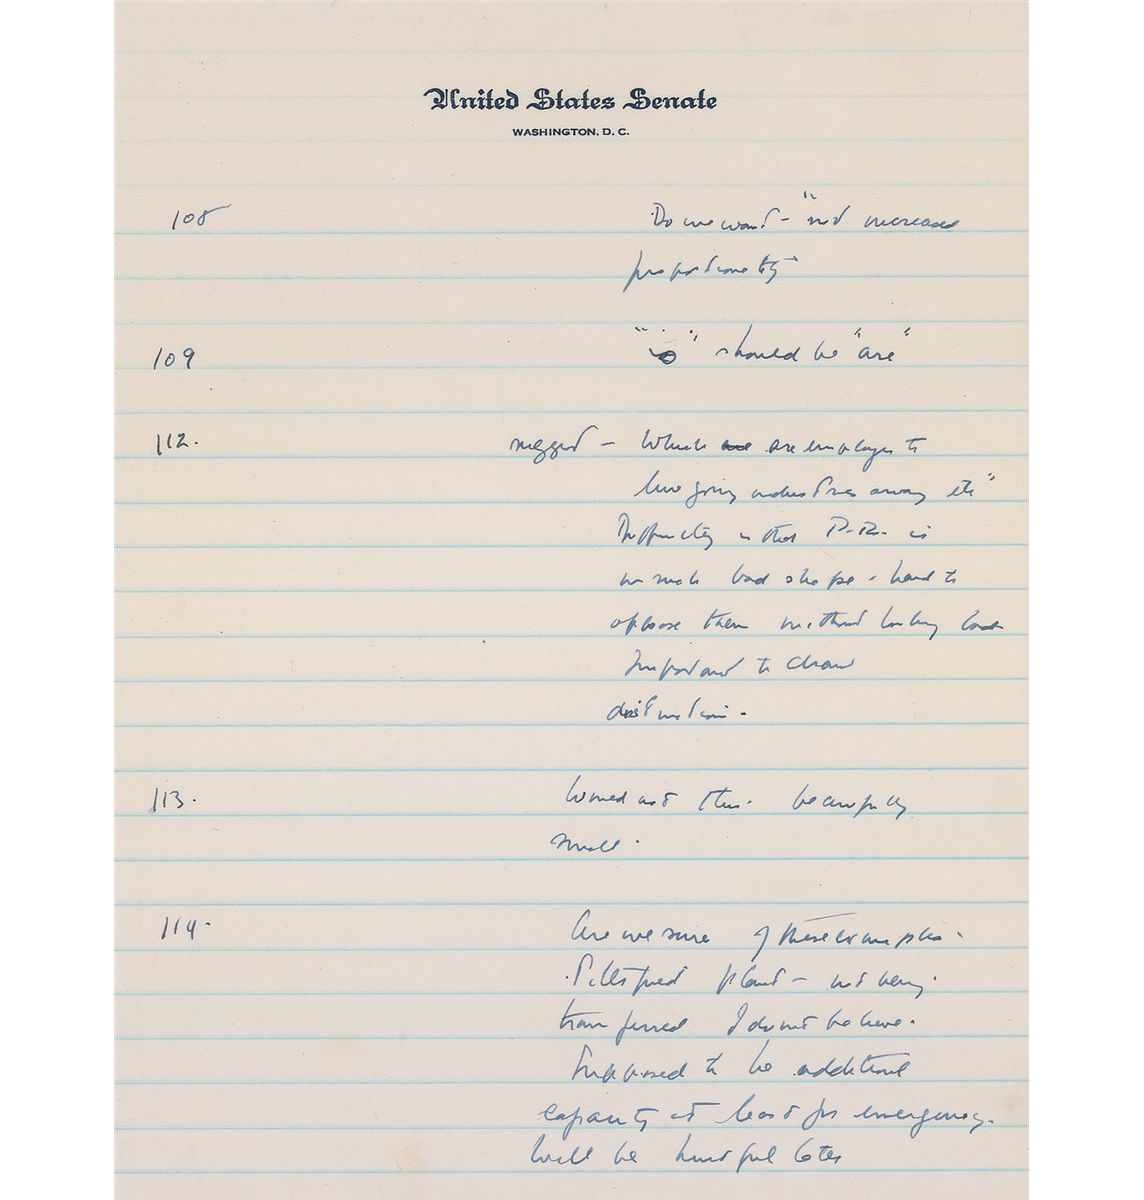 United States Senate
WASHINGTON, D. C.
108 Do we want - "not increased
proportionately
109 " " should be "are"
112. suggest - Which are employed to
lure going industries away etc"
Difficulty is that P.R. is
in such bad shape - hard to
oppose them without looking bad
Important to draw
distinction.
113. this.
small.
114. Are we sure of these examples.
plant - not being
transferred I do not believe.
Supposed to be additional
capacity at least for emergency.
Will be hurtful later